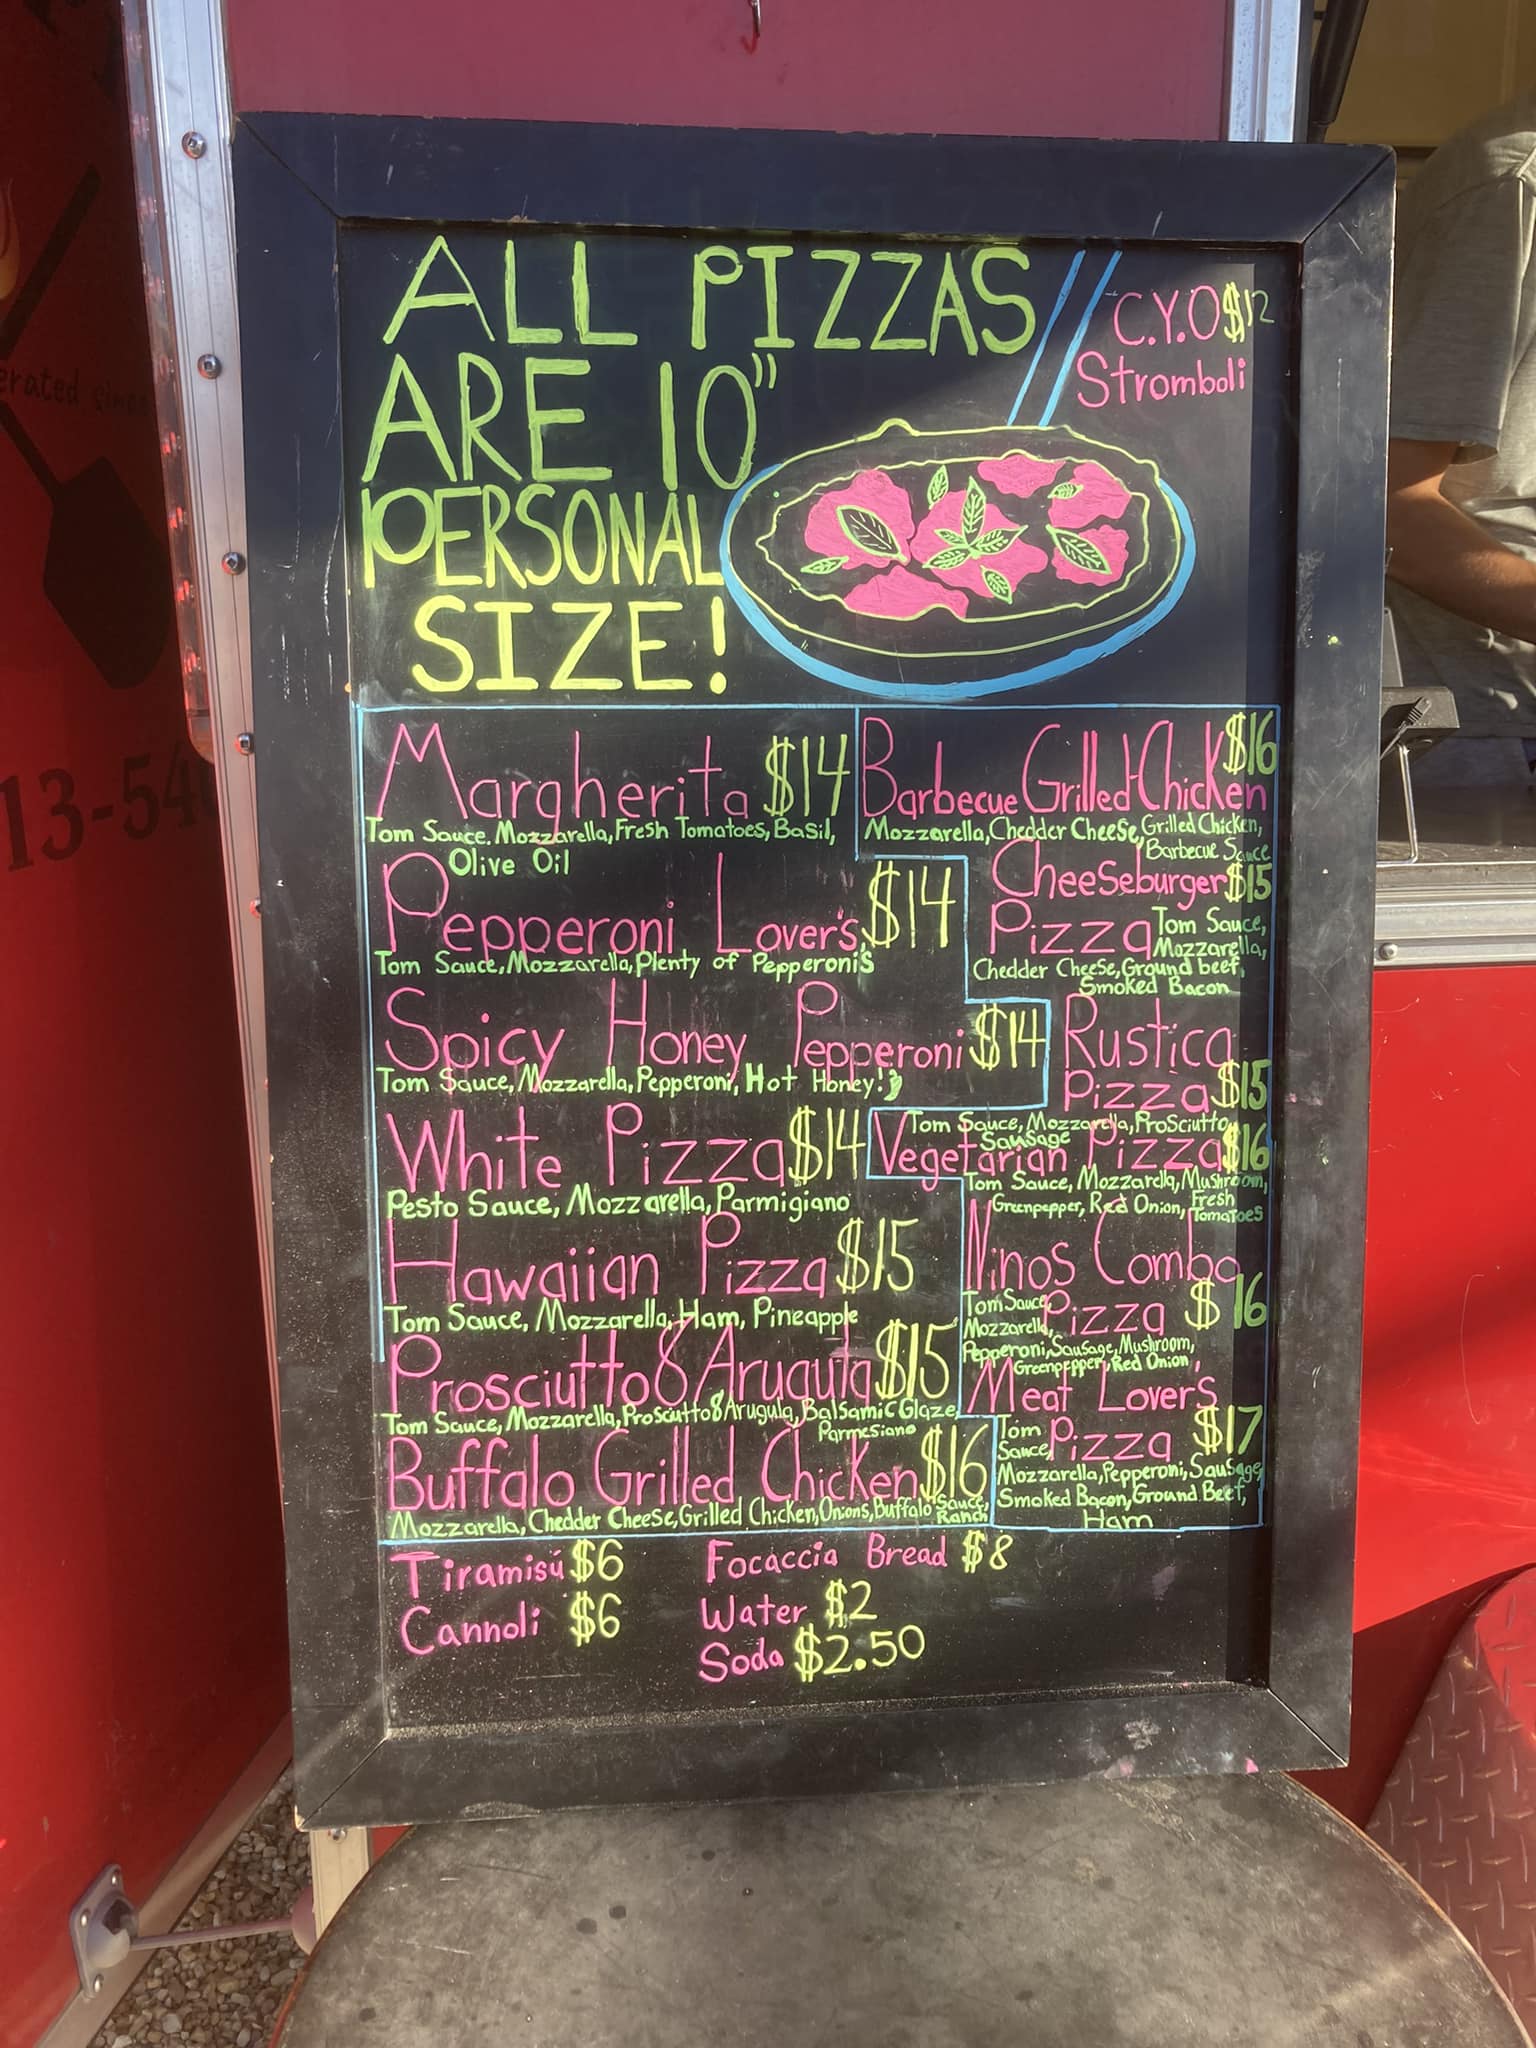 ALL PIZZAS
ARE 10"
PERSONAL
SIZE!
C.Y.O $12
Stromboli
Margherita $14
Tom Sauce, Mozzarella, Fresh Tomatoes, Basil,
Olive Oil
Pepperoni Lover's $14
Tom Sauce, Mozzarella, Plenty of Pepperoni's
Spicy Honey Pepperoni $14
Tom Sauce, Mozzarella, Pepperoni, Hot Honey!
White Pizza $14
Pesto Sauce, Mozzarella, Parmigiano
Hawaiian Pizza $15
Tom Sauce, Mozzarella, Ham, Pineapple
Prosciutto & Arugula $15
Tom Sauce, Mozzarella, Prosciutto & Arugula, Balsamic Glaze,
Parmesiano
Buffalo Grilled Chicken $16
Mozzarella, Chedder Cheese, Grilled Chicken, Onions, Buffalo Sauce,
Ranch
Barbecue Grilled Chicken $16
Mozzarella, Chedder Cheese, Grilled Chicken,
Barbecue Sauce
Cheeseburger $15
Pizza Tom Sauce,
Mozzarella,
Chedder Cheese, Ground beef,
Smoked Bacon
Rustica
Pizza $15
Tom Sauce, Mozzarella, Prosciutto
Sausage
Vegetarian Pizza $16
Tom Sauce, Mozzarella, Mushroom,
Greenpepper, Red Onion, Fresh
Tomatoes
Ninos Combo
Pizza $16
Tom Sauce
Mozzarella,
Pepperoni, Sausage, Mushroom,
Greenpepper, Red Onion,
Meat Lover's
Pizza $17
Tom
Sauce,
Mozzarella, Pepperoni, Sausage,
Smoked Bacon, Ground Beef,
Ham
Tiramisú $6
Cannoli $6
Focaccia Bread $8
Water $2
Soda $2.50